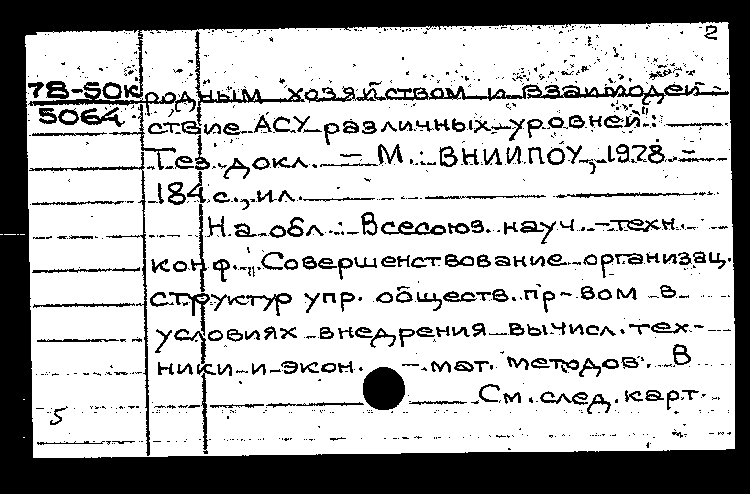 2
78-50к родным хозяйством и взаимодей-
5064 ствие АСУ различных уровней:
Тез. докл. — М.: ВНИИПОУ, 1978. -
184 с., ил.
На обл.: Всесоюз. науч.-техн.
конф. Совершенствование организац.
структур упр. обществ. пр-вом в
условиях внедрения вычисл. тех-
ники и экон. - мат. методов. В
См. след. карт.
5